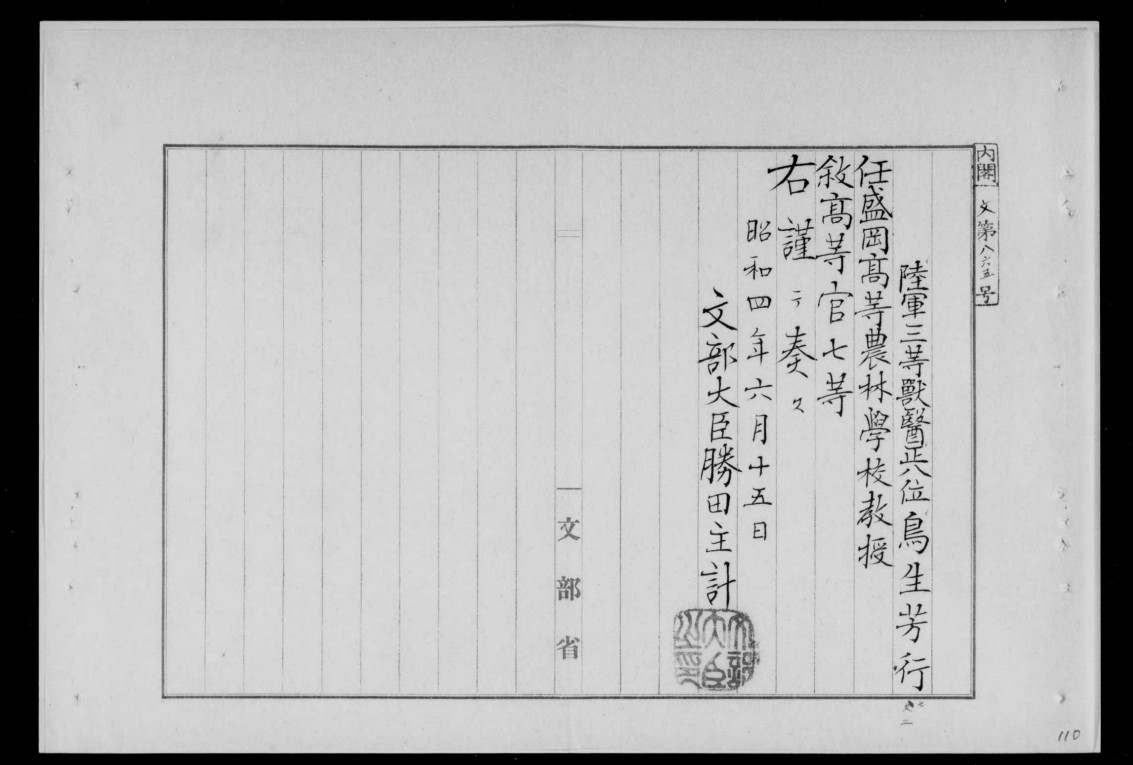 内閣
文第八六五号
陸軍三等獸醫正八位鳥生芳行
任盛岡高等農林學校教授
敘高等官七等
右謹テ奏ス
昭和四年六月十五日
文部大臣勝田主計
文部大臣之印
文部省
110